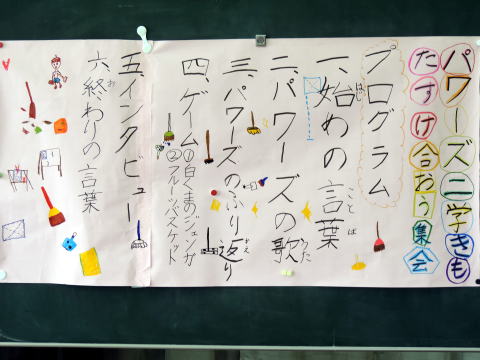 パワーズ二学きも
たすけ合おう集会
プログラム
一、始めの言葉
はじ
ことば
二、パワーズの歌
うた
三、パワーズのふり返り
かえ
四、ゲーム①白くまのジェンガ
②フルーツバスケット
五、インタビュー
六、終わりの言葉
お